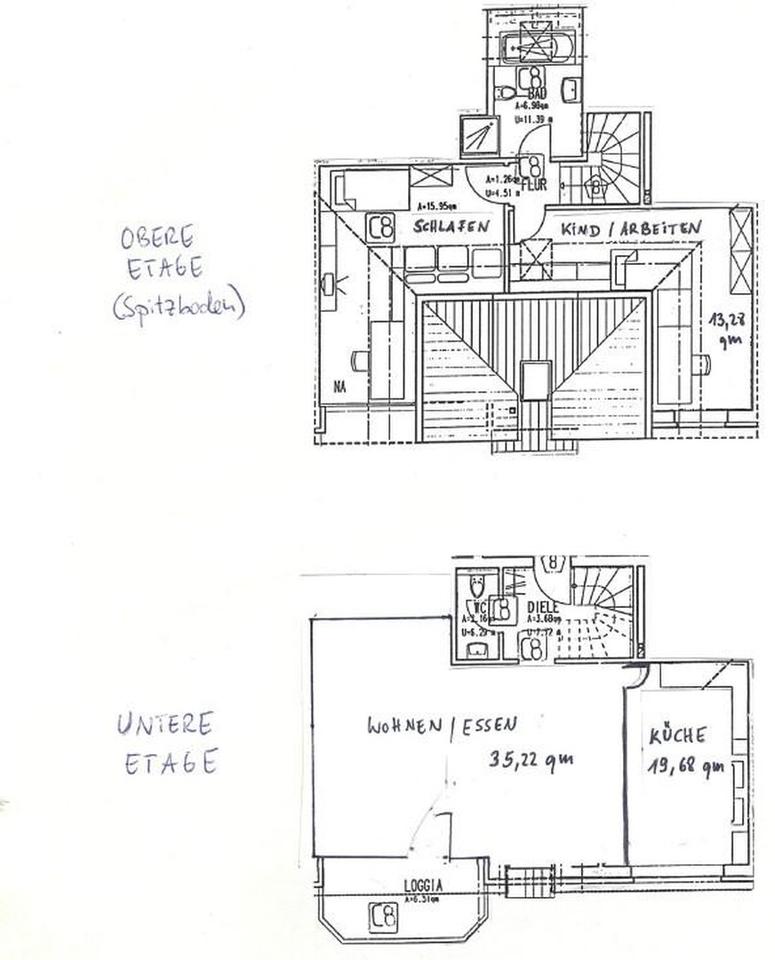 C8
BAD
A=6.90qm
U=11.39 m
C8
A=1.26qm
U=4.51 m
FLUR
8
A=15.95qm
C8
SCHLAFEN
KIND / ARBEITEN
OBERE
ETAGE
(Spitzboden)
13,28
qm
NA
8
WC
C8
DIELE
A=3.68qm
C8
WOHNEN / ESSEN
35,22 qm
KÜCHE
19,68 qm
UNTERE
ETAGE
LOGGIA
A=6.51qm
C8